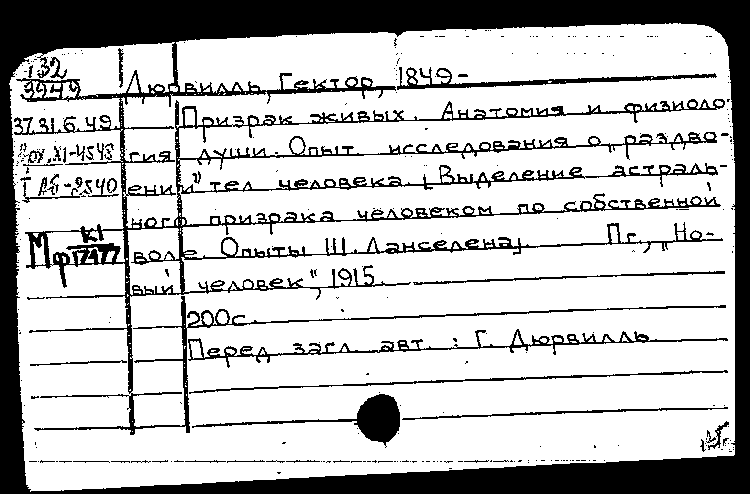 132
3949 Дюрвилль, Гектор, 1849-
37.31.6.49. Призрак живых. Анатомия и физиоло-
гия души. Опыт исследования о „раздво-
ении” тел человека. [Выделение астраль-
ного призрака человеком по собственной
Мф К1 17477 воле. Опыты Ш. Ланселена]. Пг., „Но-
вый человек”, 1915.
200с.
Перед загл. авт.: Г. Дюрвилль